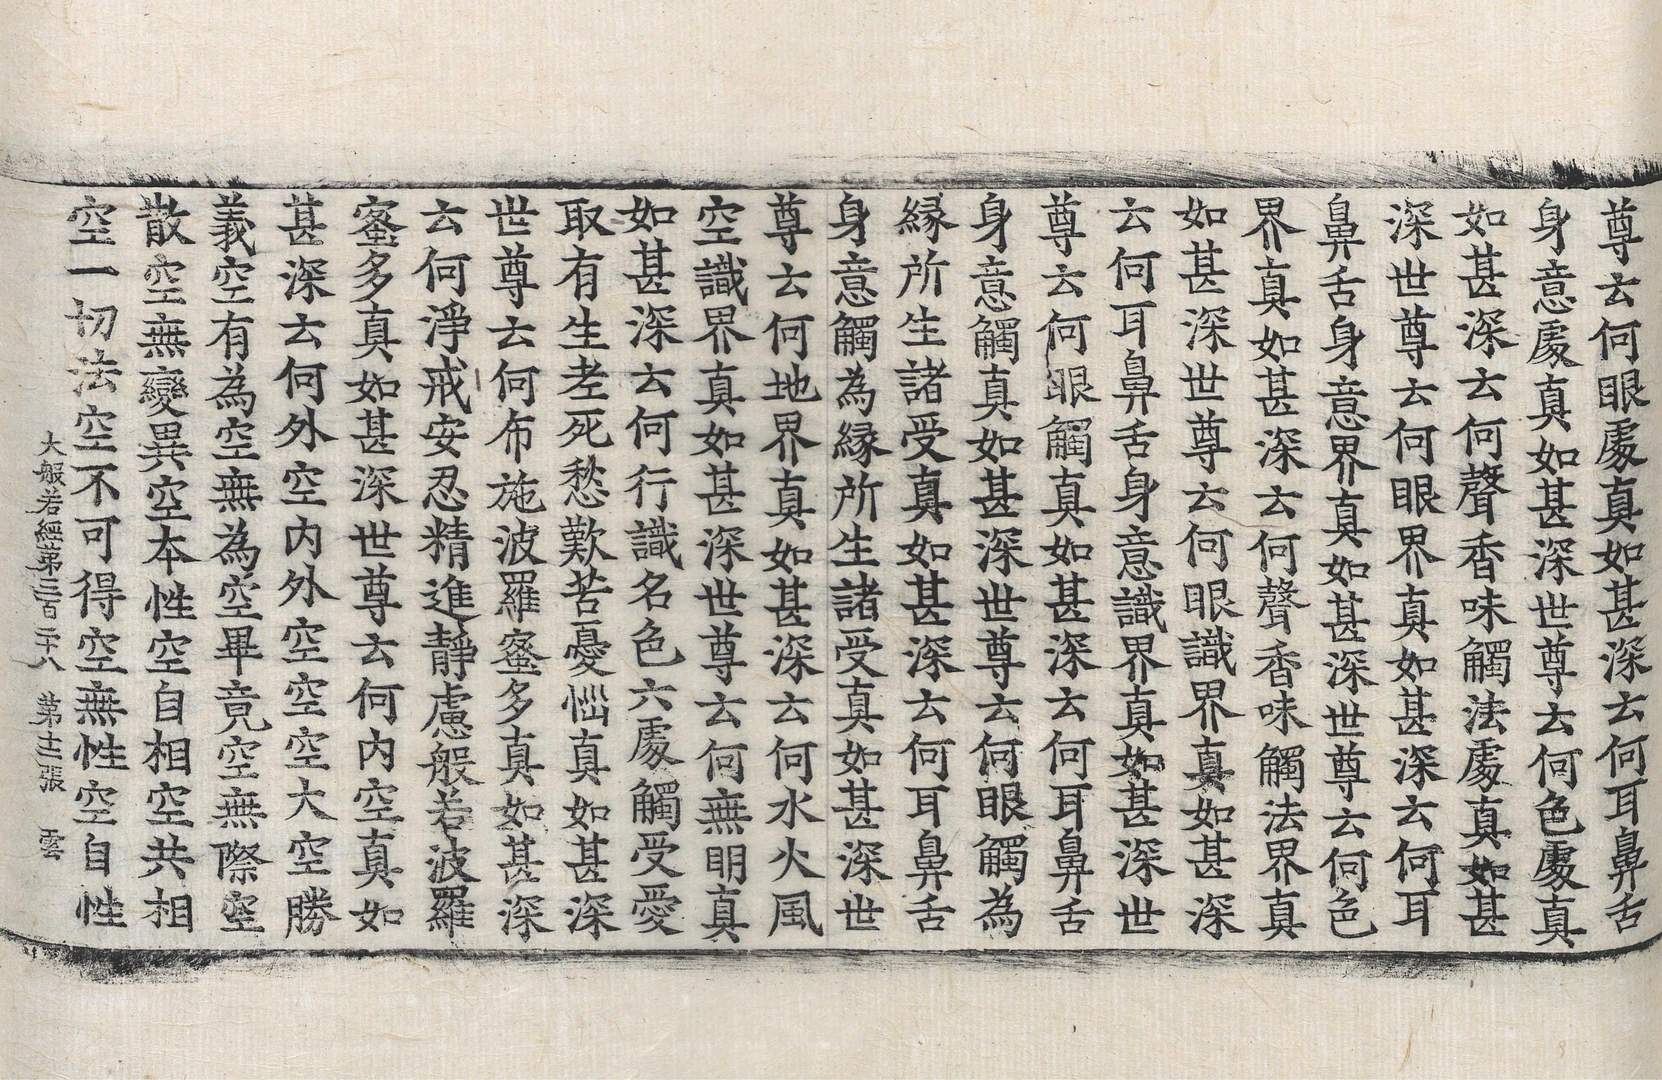 尊云何眼處真如甚深云何耳鼻舌
身意處真如甚深世尊云何色處真
如甚深云何聲香味觸法處真如甚
深世尊云何眼界真如甚深云何耳
鼻舌身意界真如甚深世尊云何色
界真如甚深云何聲香味觸法界真
如甚深世尊云何眼識界真如甚深
云何耳鼻舌身意識界真如甚深世
尊云何眼觸真如甚深云何耳鼻舌
身意觸真如甚深世尊云何眼觸為
緣所生諸受真如甚深云何耳鼻舌
身意觸為緣所生諸受真如甚深世
尊云何地界真如甚深云何水火風
空識界真如甚深世尊云何無明真
如甚深云何行識名色六處觸受愛
取有生老死愁歎苦憂惱真如甚深
世尊云何布施波羅蜜多真如甚深
云何淨戒安忍精進靜慮般若波羅
蜜多真如甚深世尊云何內空真如
甚深云何外空內外空空空大空勝
義空有為空無為空畢竟空無際空
散空無變異空本性空自相空共相
空一切法空不可得空無性空自性
大般若經第三百二十八 第十二張 雲